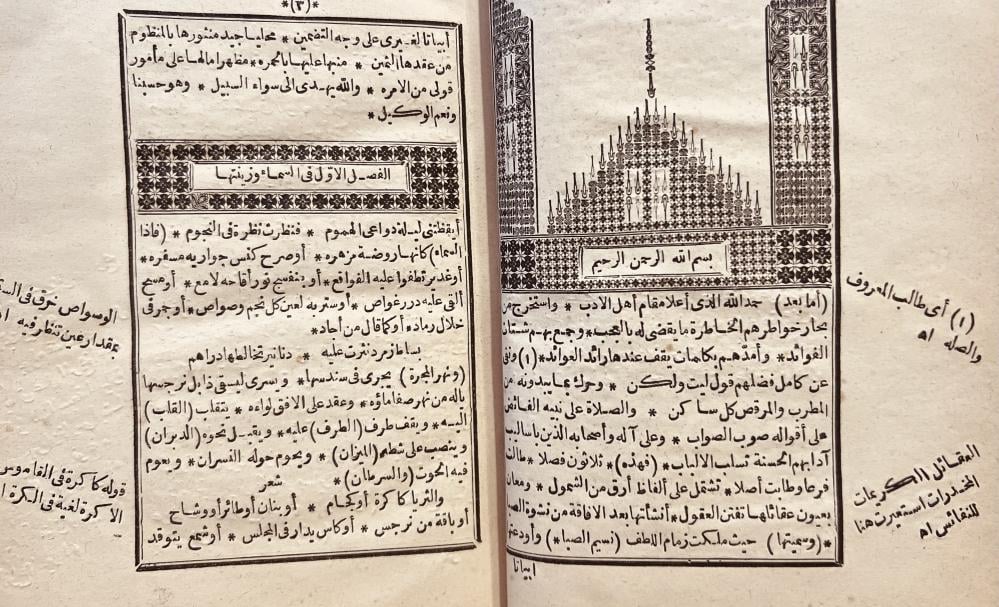 بسم الله الرحمن الرحيم
(أما بعد) حمد الله الذى أعلا مقام أهل الادب * واستخرج من
بحار خواطرهم الخاطرة ما يقضى له بالعجب * وجمع بهم شتات
الفوائد * وأمدهم بكلمات يقف عندها رائد العوائد * (١) ونفى
عن كامل فضلهم قول ليت ولكن * وحرك بما يبدونه من
المطرب والمرقص كل ساكن * والصلاة على نبيه الفائض
على أقواله صوب الصواب * وعلى آله وأصحابه الذين بأساليب
آدابهم الحسنة تسلب الالباب * (فهذه) * ثلاثون فصلا * طالت
فرعا وطابت أصلا * تشتمل على ألفاظ أرق من الشمول * ومعان
بعيون عقائلها تفتن العقول * أنشأتها بعد الافاقة من نشوة الصبا
* (وسميتها) حيث ملكت زمام اللطف (نسيم الصبا) * وأودعتها
ابياتا
(١) أى طالب المعروف
والصله اه
العقائل الكريمات
المخدرات استعيرت هنا
للنفائس اه
*(٣)*
أبياتا لغيرى على وجه التضمين * محليا جيد منثورها بالمنظوم
من عقدها الثمين * منبها عليها بالحمره * مظهرا مالها على مأمور
قولى من الامره * والله يهدى الى سواء السبيل * وهو حسبنا
ونعم الوكيل *
الفصل الاول فى السماء وزينتها
أيقظتنى ليلة دواعى الهموم * فنظرت نظرة فى النجوم * (فاذا
السماء) كأنها روضة مزهره * أو صرح كنس جواريه مسفره *
أو غدير تطفو عليه الفواقع * أو بنفسج نور أقاحه لامع * أو مسح
ألقى عليه درر غواص * أو ستر به لعين كل نجم وصواص * أو جمر فى
خلال رماد * أو كما قال من أجاد *
بساط زمرد نثرت عليه * دنانير تخالطها دراهم
(ونهر المجرة) يجرى فى سندسها * ويسرى ليسقى ذابل نرجسها
ياله من نهر صفا ماؤه * وعقد على الافق لواءه * يتقلب (القلب)
اليه * ويقف طرف (الطرف) عليه * ويقبل نحوه (الدبران)
وينصب على شطه (الميزان) * ويحوم حوله النسران * ويعوم
فيه الحوت (والسرطان) * شعر
والثريا كاكرة أو كجام * أو بنان أو طائر أو وشاح
أو باقة من نرجس * أو كاس يدار فى المجلس * أو شمع يتوقد
الوصواص خرق فى الست
بمقدار عين تنظر فيه
قوله كاكرة فى القاموس
الاكرة لغية فى الكرة